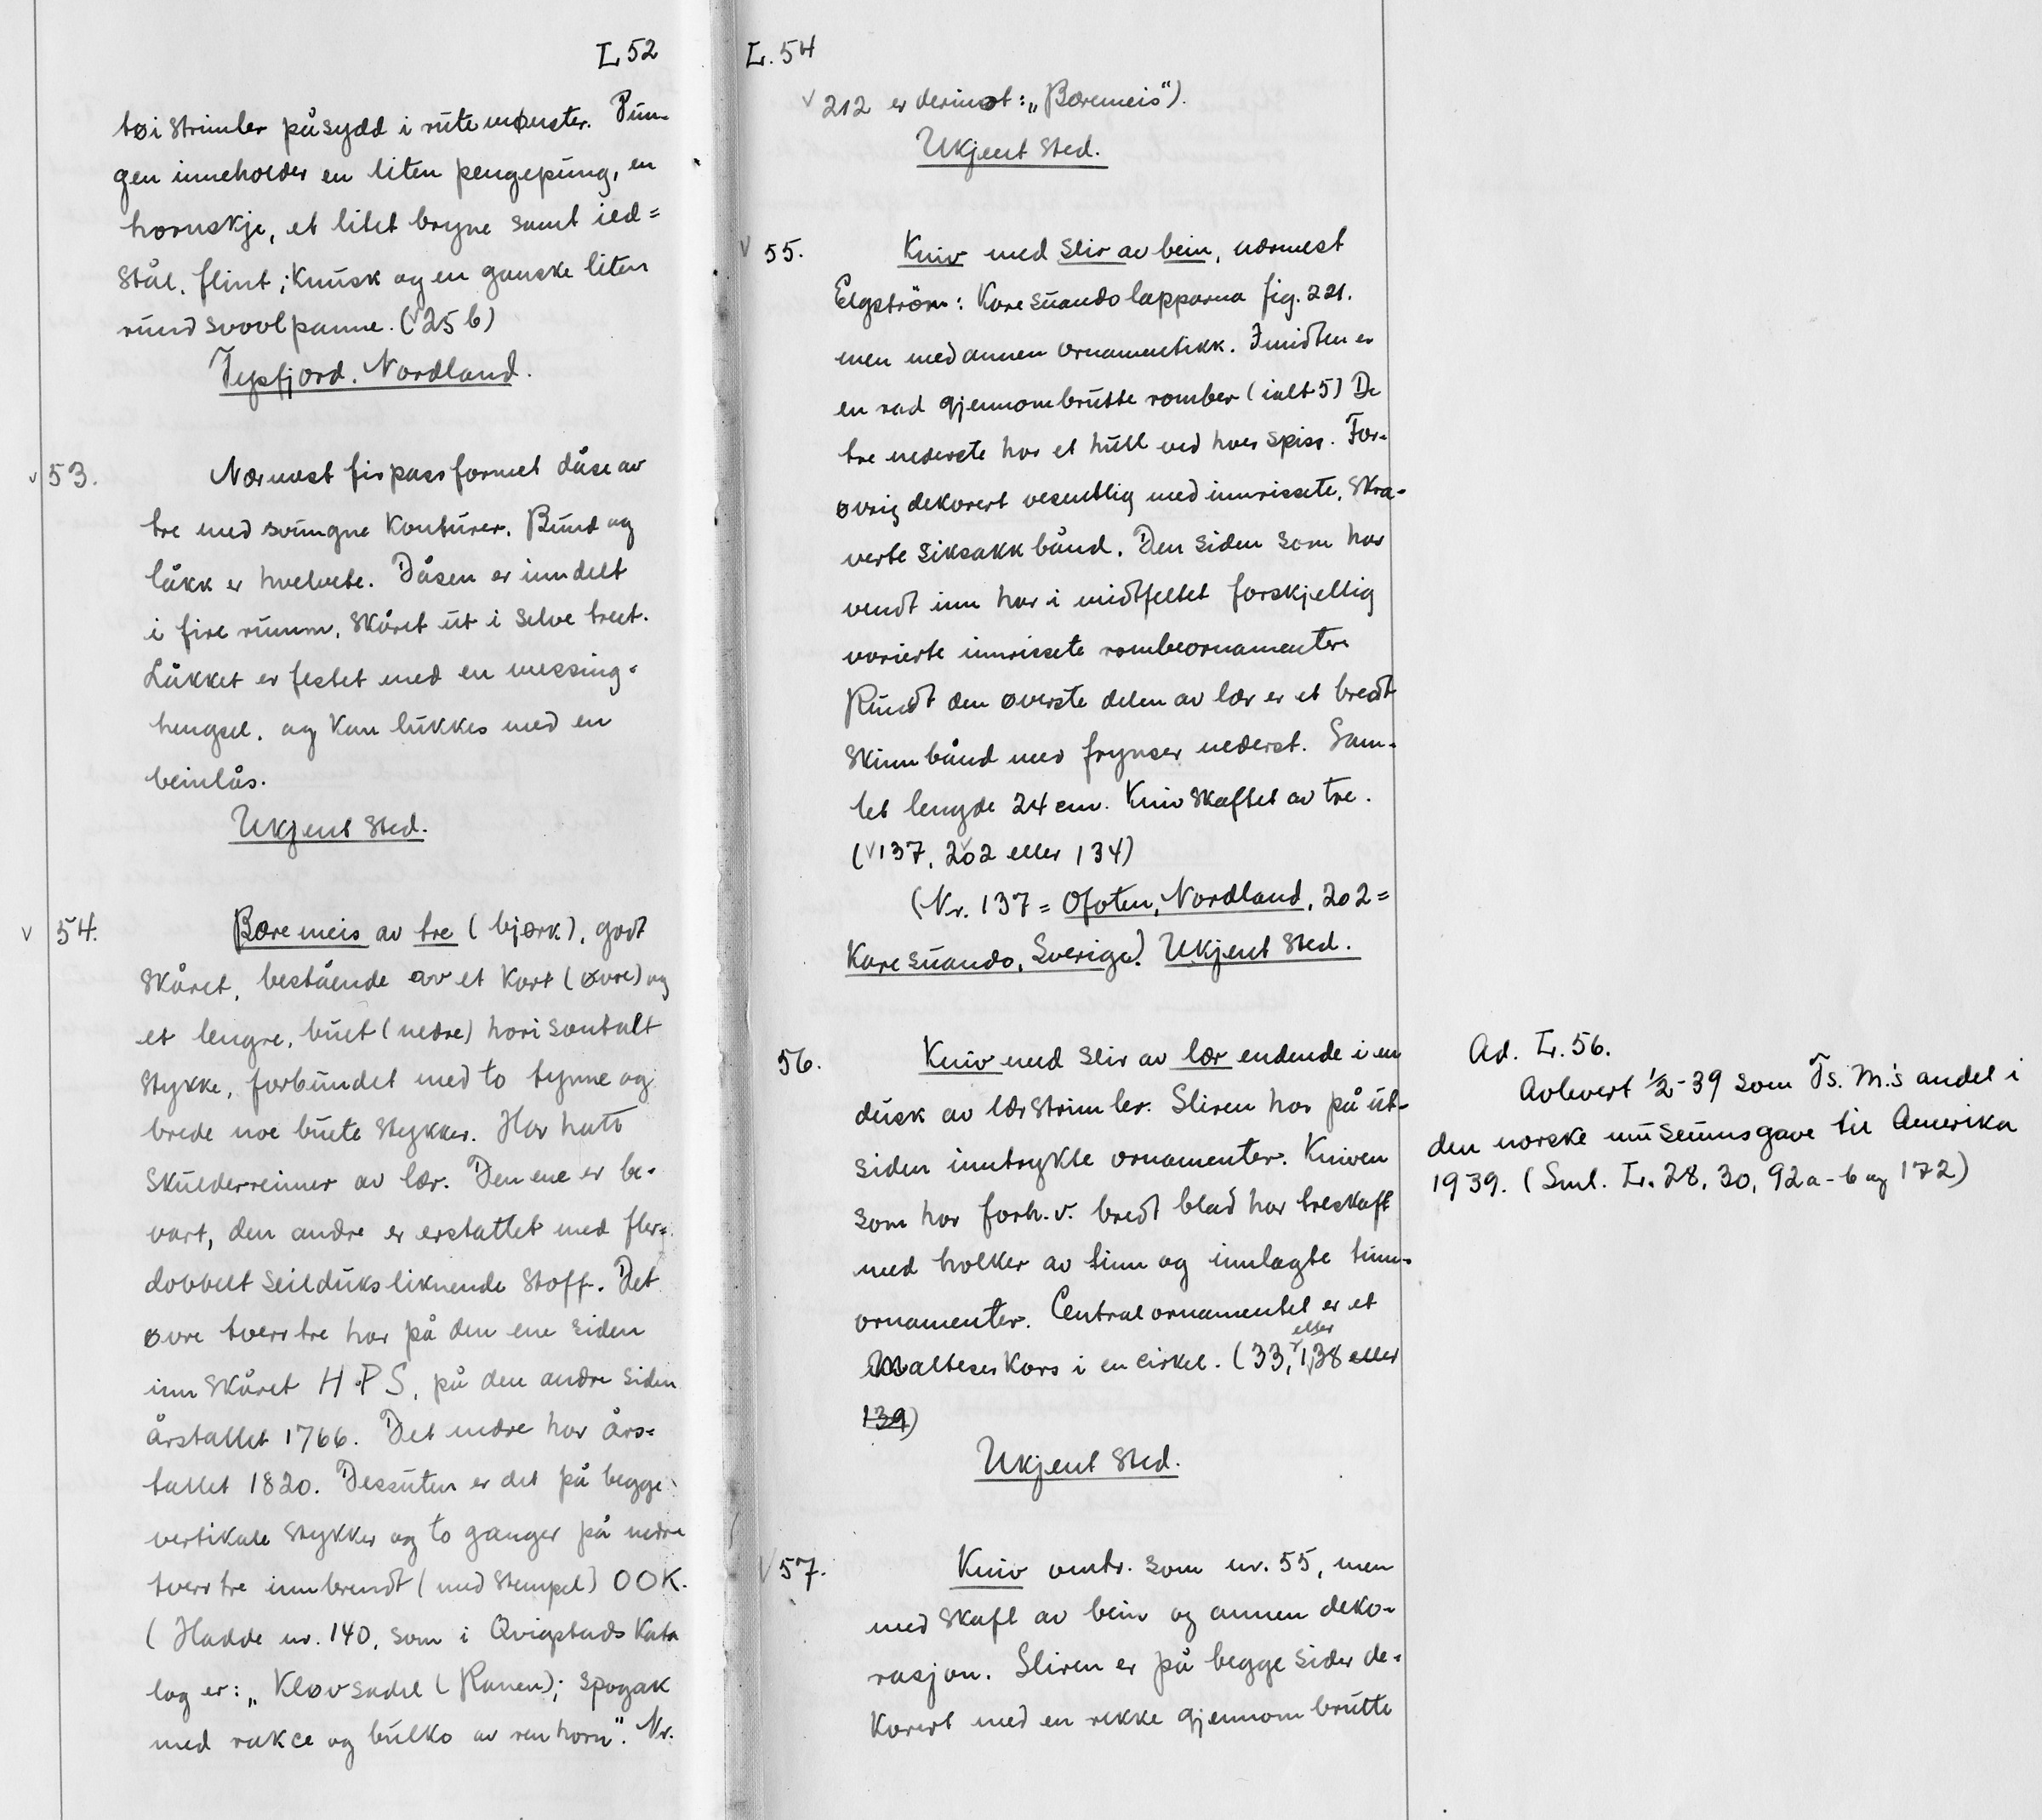 L. 52
tøi strimler påsydd i rutemønster. Pun-
gen inneholder en liten pengepung, en
hornskje, et litet bryne samt ild=
stål, flint, knusk og en ganske liten
rund svovlpanne. (√25 b)
Tysfjord. Nordland.
√ 53. Nærmest firpassformet dåse av
tre med svungne konturer. Bund og
låkk er hvelvete. Dåsen er inndelt
i fire rumm, skåret ut i selve treet.
Låkket er festet med en messing-
hengsel, og kan lukkes med en
beinlås.
Ukjent sted.
√ 54. Bæremeis av tre (bjørk), godt
skåret, bestående av et kort (øvre) og
et lengre, buet (nedre) horisontalt
stykke, forbundet med to tynne og
brede noe buete stykker. Har hatt
skulderreimer av lær. Den ene er be-
vart, den andre er erstattet med fler-
dobbelt seilduksliknende stoff. Det
øvre tverrtre har på den ene siden
innskåret H.P S, på den andre siden
årstallet 1766. Det nedre har års=
tallet 1820. Dessuten er det på begge
vertikale stykker og to ganger på nedre
tverrtre innbrendt (med stempel) OOK.
(Hadde nr. 140, som i Qvigstads Kata
log er: „Kløvsadel (Ranen); spogak
med rakce og bulko av renhorn". Nr.
L. 54
√ 212 er derimot: „Bæremeis").
Ukjent sted.
√ 55. Kniv med slir av bein, nærmest
Elgström: Karesuandolapparna fig. 221.
men med annen ornamentikk. I midten er
en rad gjennombrutte romber (ialt 5) De
tre nederste har et hull ved hver spiss. For-
øvrig dekorert vesentlig med innrissete, skra-
verte siksakkbånd. Den siden som har
vendt inn har i midtfeltet forskjellig
varierte innrissete rombeornamenter.
Rundt den øverste delen av lær er et bredt
skinnbånd med frynser nederst. Sam-
let lengde 24 cm. Knivskaftet av tre.
(√137, √202 eller 134)
(Nr. 137 = Ofoten, Nordland, 202 =
Karesuando, Sverige). Ukjent sted.
56. Kniv med slir av lær endende i en
dusk av lærstrimler. Sliren har på ut-
siden inntrykte ornamenter. Kniven
som har forh. v. bredt blad har treskaft
med holker av tinn og innlagte tinn-
ornamenter. Centralornamentet er et
Malteserkors i en cirkel. (33, eller √138 eller
139)
Ukjent sted.
√ 57. Kniv omtr. som nr. 55, men
med skaft av bein og annen deko-
rasjon. Sliren er på begge sider de-
korert med en rekke gjennombrutte
Ad. L. 56.
Avlevert 1/2-39 som Ts. M.'s andel i
den norske museumsgave til Amerika
1939. (Sml. L. 28, 30, 92a-b og 172)